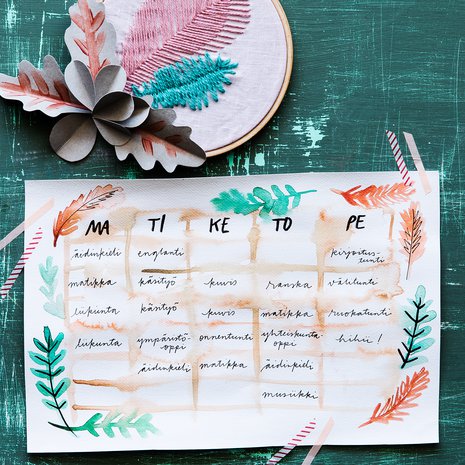 MA TI KE TO PE
äidinkieli englanti kirjoitus-
tunti
matikka käsityö kuvis ranska välitunti
lukunta käsityö kuvis matikka ruokatunti
lukunta ympäristö- onnentunti yhteiskunta- hihii!
oppi oppi
äidinkieli matikka äidinkieli
musiikki